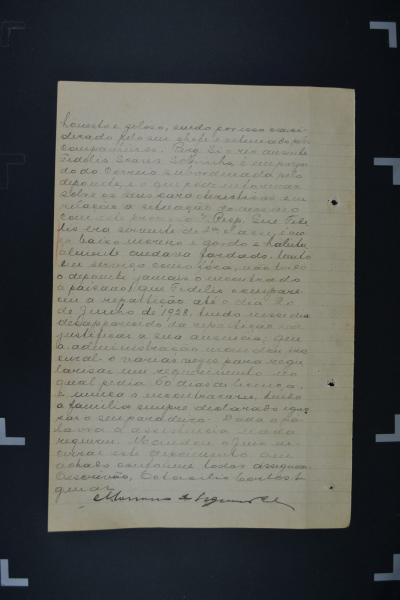 honesto e zeloso, sendo por isso consi-
derado pelo seu chefe e estimado por
companheiros. Perg. Si o réo ausente
Fidelis Soares Sobrinho é emprega-
do do Correio subordinado pelo
depoente, e o que pode informar
sobre os seus caracteristicos em
relação a situação do mesmo
com este processo? Resp. Que Fide-
lis era servente de 2ª classe, é
baixo moreno e gordo e habitu-
almente andava fardado, tanto
em serviço como fóra, não tendo
o depoente jamais o encontrado
a paisano; que Fidelis compare-
ceu a repartição até o dia 20
de Junho de 1928, tendo nesse dia
desapparecido da repartição sem
justificar a sua ausencia; que
a administração mandou pro-
cural-o varias vezes para regu-
larisar um requerimento no
qual pedia 60 dias de licença,
e nunca o encontraram, tendo
a familia sempre declarado igno-
rar o seu paradeiro. Dada a pa-
lavra á assistencia nada
requereu. Mandou o Juiz en-
cerrar este depoimento que
achado conforme, todos assignam.
Escrivão,